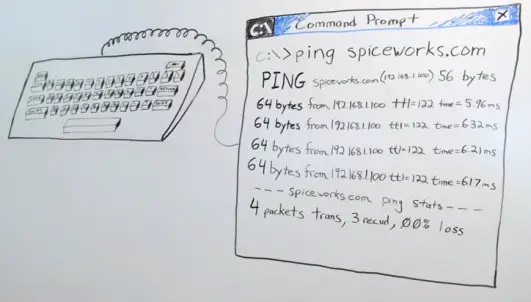 C:\ Command Prompt X
C:\>ping spiceworks.com
PING spiceworks.com (192.168.1.100) 56 bytes
64 bytes from 192.168.1.100 ttl=122 time=5.96ms
64 bytes from 192.168.1.100 ttl=122 time=6.32ms
64 bytes from 192.168.1.100 ttl=122 time=6.21ms
64 bytes from 192.168.1.100 ttl=122 time=6.17ms
--- spiceworks.com ping stats ---
4 packets trans, 3 recvd, 00% loss